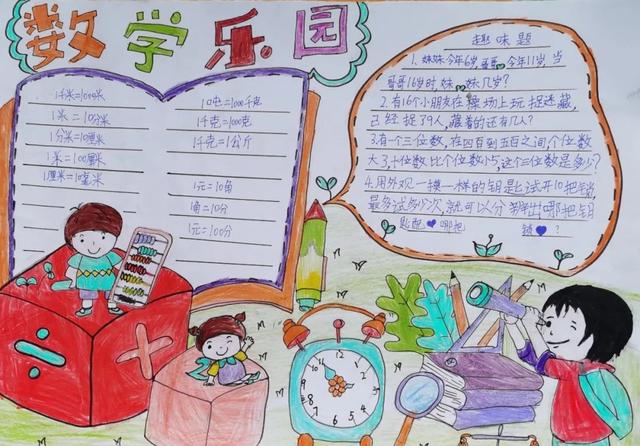 数学乐园
1千米=1000米
1米=10分米
1分米=10厘米
1米=100厘米
1厘米=10毫米
1吨=1000千克
1千克=1000克
1千克=1公斤
1元=10角
1角=10分
1元=100分
趣味题
1.妹妹今年6岁,哥哥今年11岁,当
哥哥16岁时,妹妹几岁?
2.有16个小朋友在操场上玩捉迷藏,
已经捉了9人,藏着的还有几人?
3.有一个三位数,在四百到五百之间,个位数
大了,十位数比个位数小5,这个三位数是多少?
4.用外观一摸一样的钥匙试开10把锁,
最多试多少次,就可以分辨出哪把钥
匙配 哪把 锁 ?